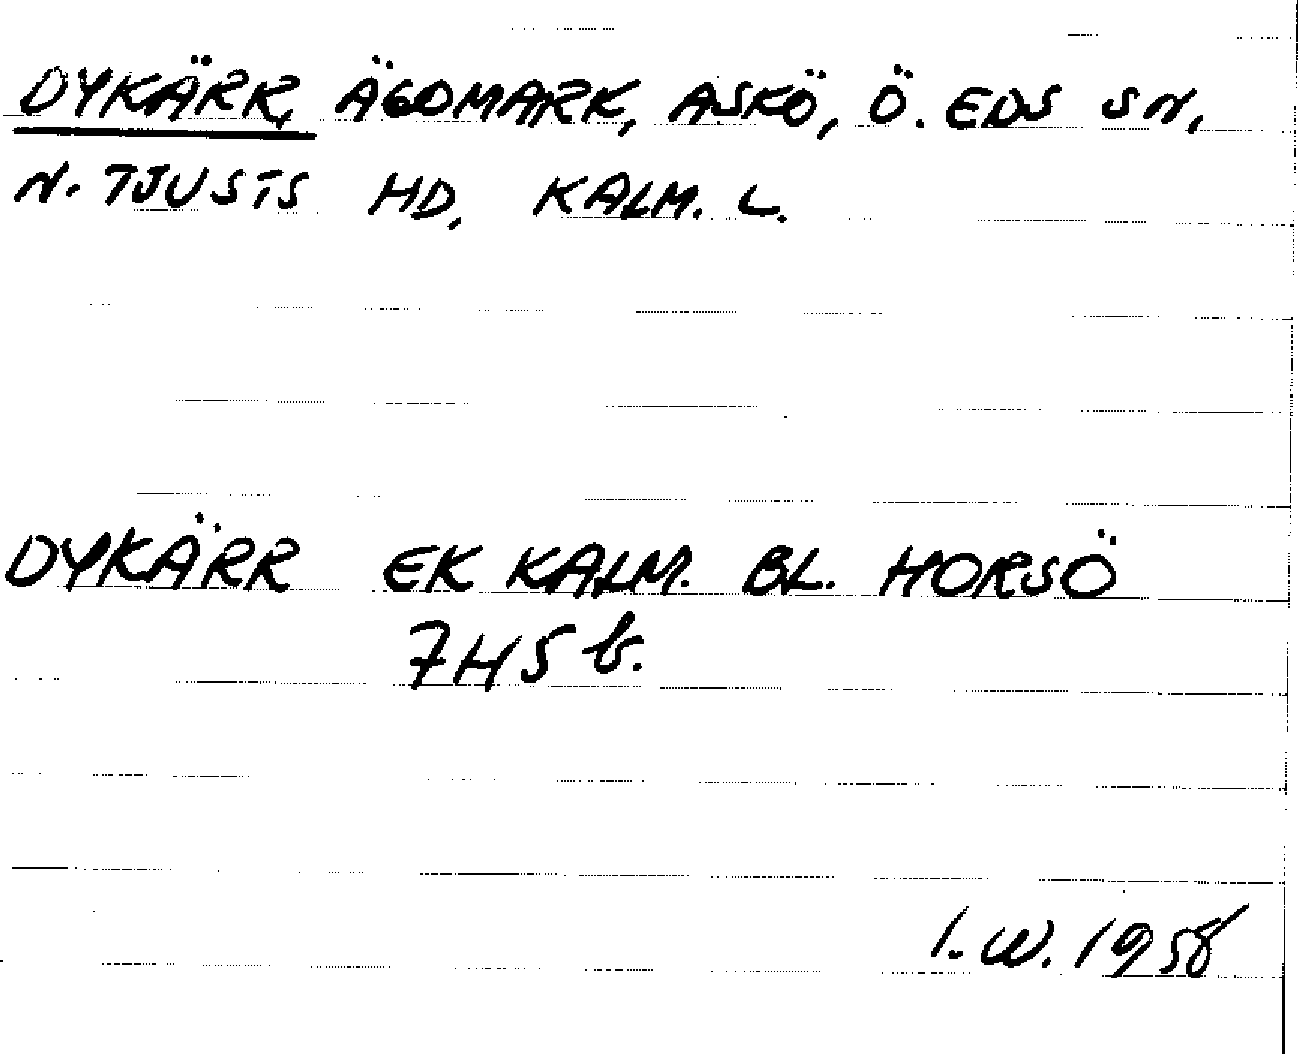 DYKÄRR, ÄGOMARK, ASKÖ, Ö. EDS SN,
N. TJUSTS HD, KALM. L.
DYKÄRR EK KALM. BL. HORSÖ
7H5b.
I.W. 1958